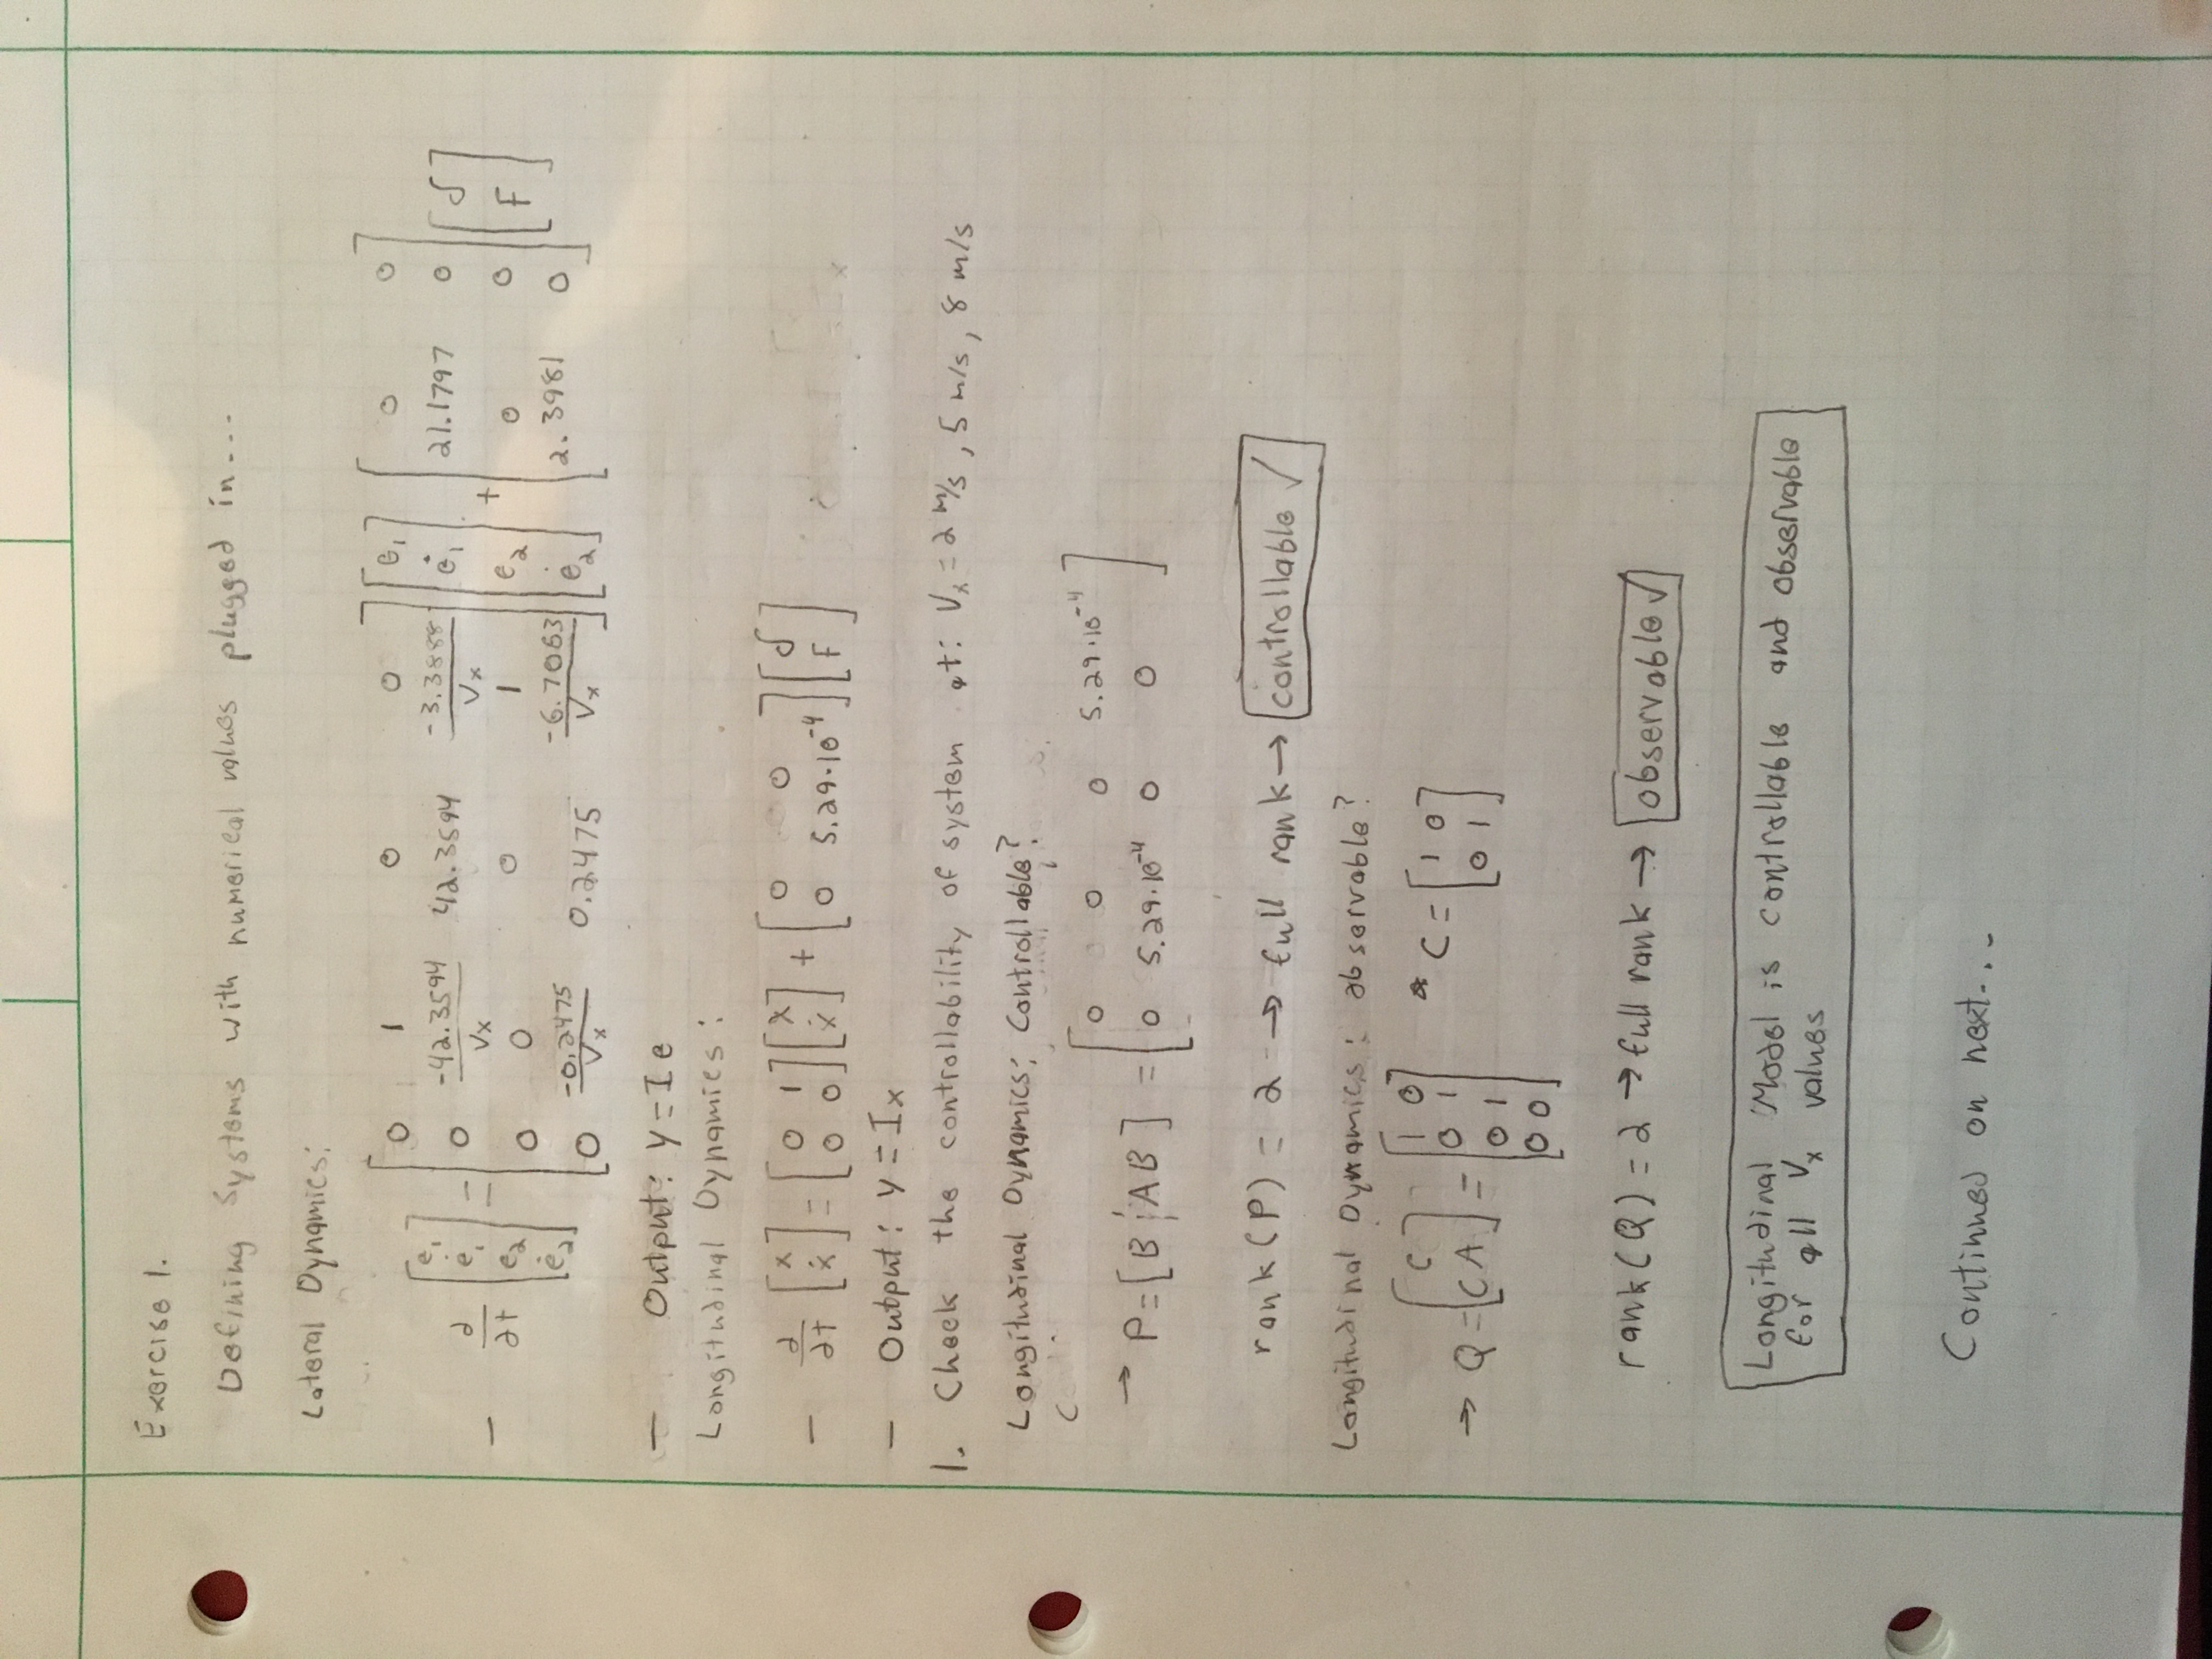 Exercise 1.
Defining Systems with numerical values plugged in...
Lateral Dynamics:
— d/dt [e₁; ė₁; e₂; ė₂] = [0 1 0 0; 0 -42.3594/Vx 42.3594 -3.3888/Vx; 0 0 0 1; 0 -0.2475/Vx 0.2475 -6.7063/Vx] [e₁; ė₁; e₂; ė₂] + [0 0; 21.1797 0; 0 0; 2.3981 0] [δ; F]
— Output: y = I e
Longitudinal Dynamics:
— d/dt [x; ẋ] = [0 1; 0 0] [x; ẋ] + [0 0; 0 5.29·10⁻⁴] [δ; F]
— Output: y = Ix
1. Check the controllability of system at: Vx = 2 m/s, 5 m/s, 8 m/s
Longitudinal Dynamics; Controllable?
C
→ P = [B ¦ AB] = [0 0 0 5.29·10⁻⁴; 0 5.29·10⁻⁴ 0 0]
rank(P) = 2 → full rank → controllable ✓
Longitudinal Dynamics: observable?
→ Q = [C; CA] = [1 0; 0 1; 0 1; 0 0] * C = [1 0; 0 1]
rank(Q) = 2 → full rank → observable ✓
Longitudinal Model is controllable and observable
for all Vx values
Continued on next...